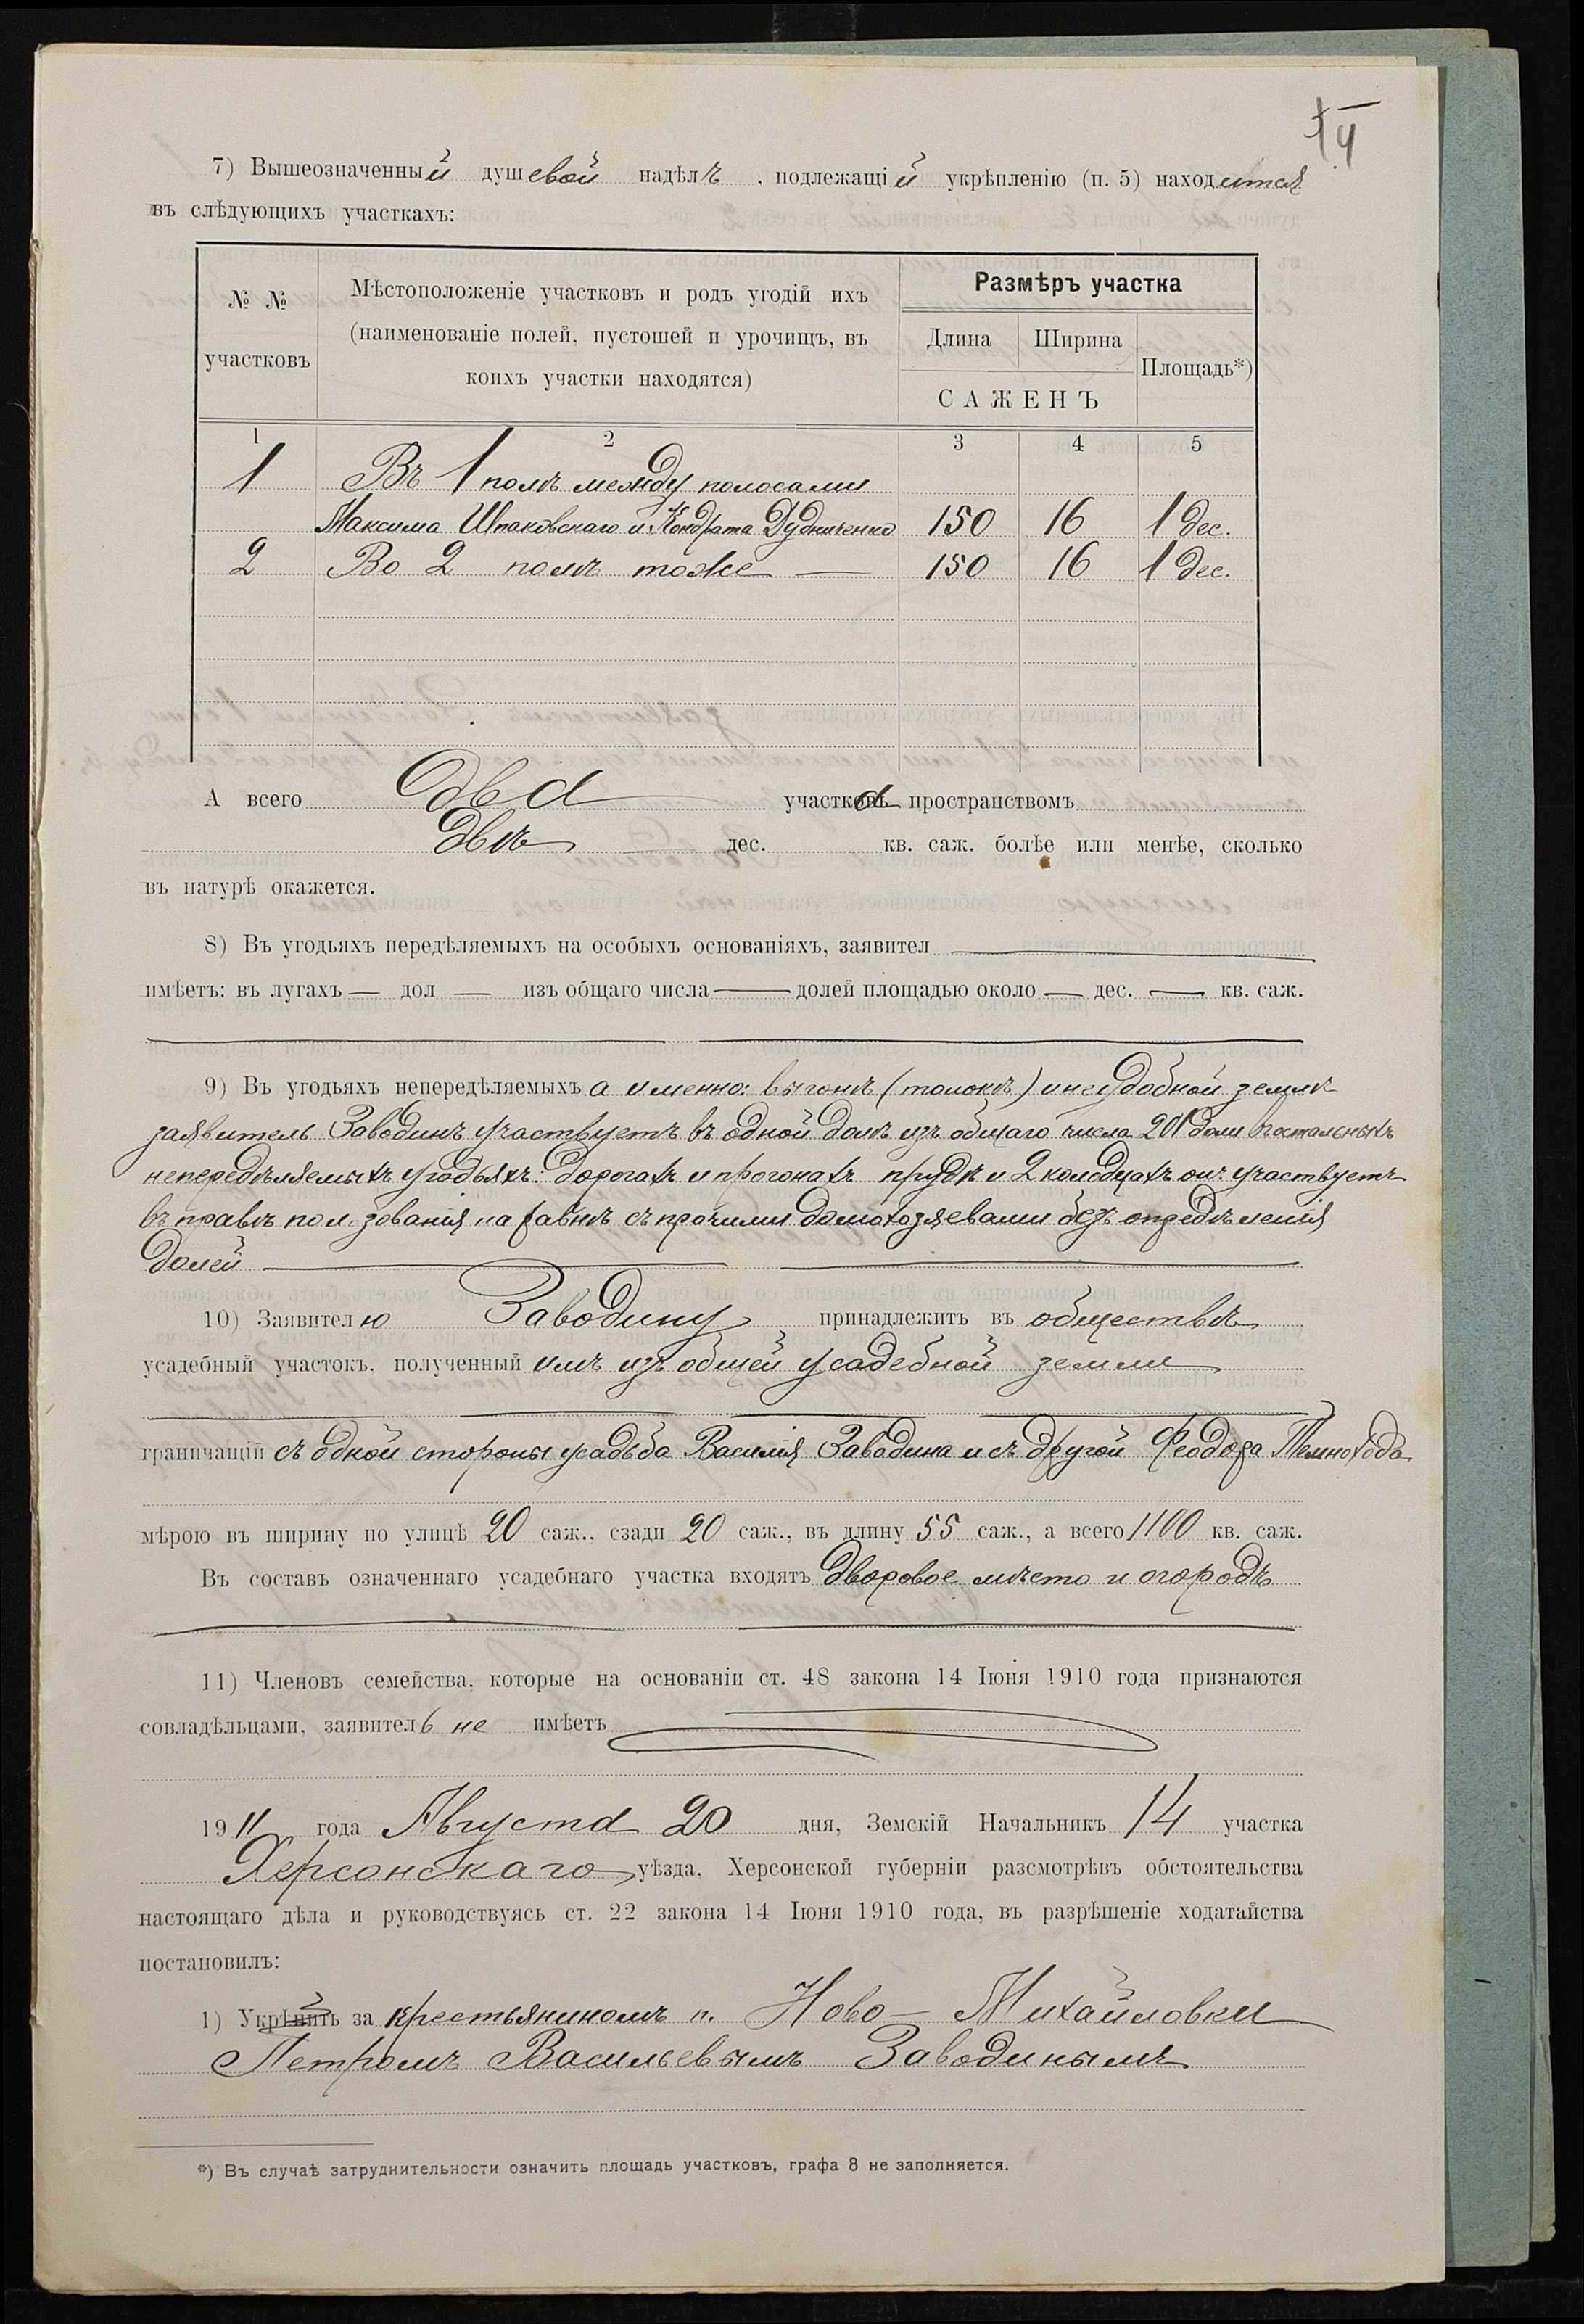 4
7) Вышеозначенный душевой надѣлъ, подлежащій укрѣпленію (п. 5) находится
въ слѣдующихъ участкахъ:
№ № участковъ
Мѣстоположеніе участковъ и родъ угодій ихъ
(наименованіе полей, пустошей и урочищъ, въ
коихъ участки находятся)
Размѣръ участка
Длина Ширина Площадь*)
САЖЕНЪ
1 2 3 4 5
1 Въ 1 полѣ между полосами
Максима Шпаковскаго и Кондрата Дудниченко 150 16 1 дес.
2 Во 2 полѣ тоже — 150 16 1 дес.
А всего два участка пространствомъ
двѣ дес. кв. саж. болѣе или менѣе, сколько
въ натурѣ окажется.
8) Въ угодьяхъ передѣляемыхъ на особыхъ основаніяхъ, заявител —
имѣетъ: въ лугахъ — дол — изъ общаго числа — долей площадью около — дес. — кв. саж.
9) Въ угодьяхъ непередѣляемыхъ а именно: выгонѣ (толокѣ) и неудобной землѣ
заявитель Заводинъ участвуетъ въ одной долѣ изъ общаго числа 201 доли въ остальныхъ
непередѣляемыхъ угодьяхъ: дорогахъ и прогонахъ прудѣ и 2 колодцахъ онъ участвуетъ
въ правѣ пользованія на равнѣ съ прочими домохозяевами безъ опредѣленія
долей
10) Заявителю Заводину принадлежитъ въ обществѣ
усадебный участокъ, полученный имъ изъ общей усадебной земли
граничащій съ одной стороны усадьба Василія Заводина и съ другой Феодора Темнохода
мѣрою въ ширину по улицѣ 20 саж., сзади 20 саж., въ длину 55 саж., а всего 1100 кв. саж.
Въ составъ означеннаго усадебнаго участка входятъ дворовое мѣсто и огородъ
11) Членовъ семейства, которые на основаніи ст. 48 закона 14 Іюня 1910 года признаются
совладѣльцами, заявитель не имѣетъ
1911 года Августа 20 дня, Земскій Начальникъ 14 участка
Херсонскаго уѣзда, Херсонской губерніи разсмотрѣвъ обстоятельства
настоящаго дѣла и руководствуясь ст. 22 закона 14 Іюня 1910 года, въ разрѣшеніе ходатайства
постановилъ:
1) Укрѣпить за крестьяниномъ п. Ново-Михайловки
Петромъ Васильевымъ Заводинымъ
*) Въ случаѣ затруднительности означить площадь участковъ, графа 8 не заполняется.